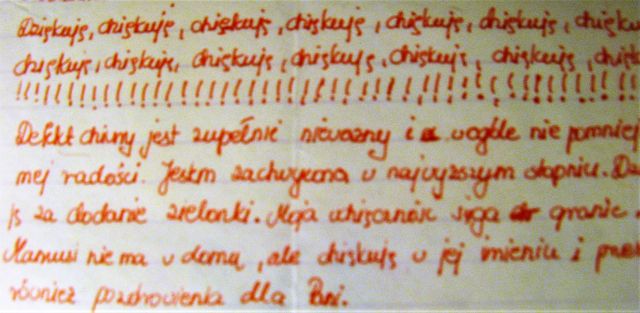 Dziękuję, dziękuję, dziękuję, dziękuję, dziękuję, dziękuję,
dziękuję, dziękuję, dziękuję, dziękuję, dziękuję, dziękuję,
!!!!!!!!!!!!!!!!!!!!!!!!!!!!!!!!!!!!!!!!!!!!
Defekt chiny jest zupełnie nieważny i w ogóle nie pomniej
mej radości. Jestem zachwycona w najwyższym stopniu. Dz
ję za dodanie zielonki. Moja wdzięczność sięga granic
Mamusi nie ma w domu, ale dziękuję w jej imieniu i prze
również pozdrowienia dla Pani.